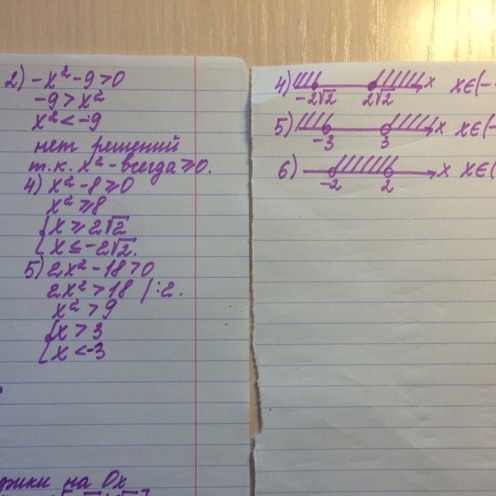 2) -x²-9>0
-9>x²
x²<-9
нет решений
т.к. x²-всегда≥0.
4) x²-8≥0
x²≥8
[x≥2√2
[x≤-2√2.
5) 2x²-18>0
2x²>18 /:2.
x²>9
[x>3
[x<-3
на Ox
4) -2√2 2√2 x x∈(-
5) -3 3 x x∈(-
6) -2 2 x x∈(